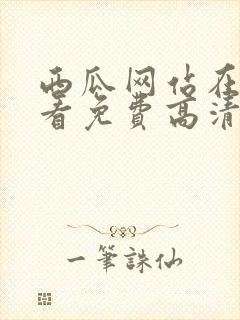 西瓜网估在
看免费高清
一筆誅仙